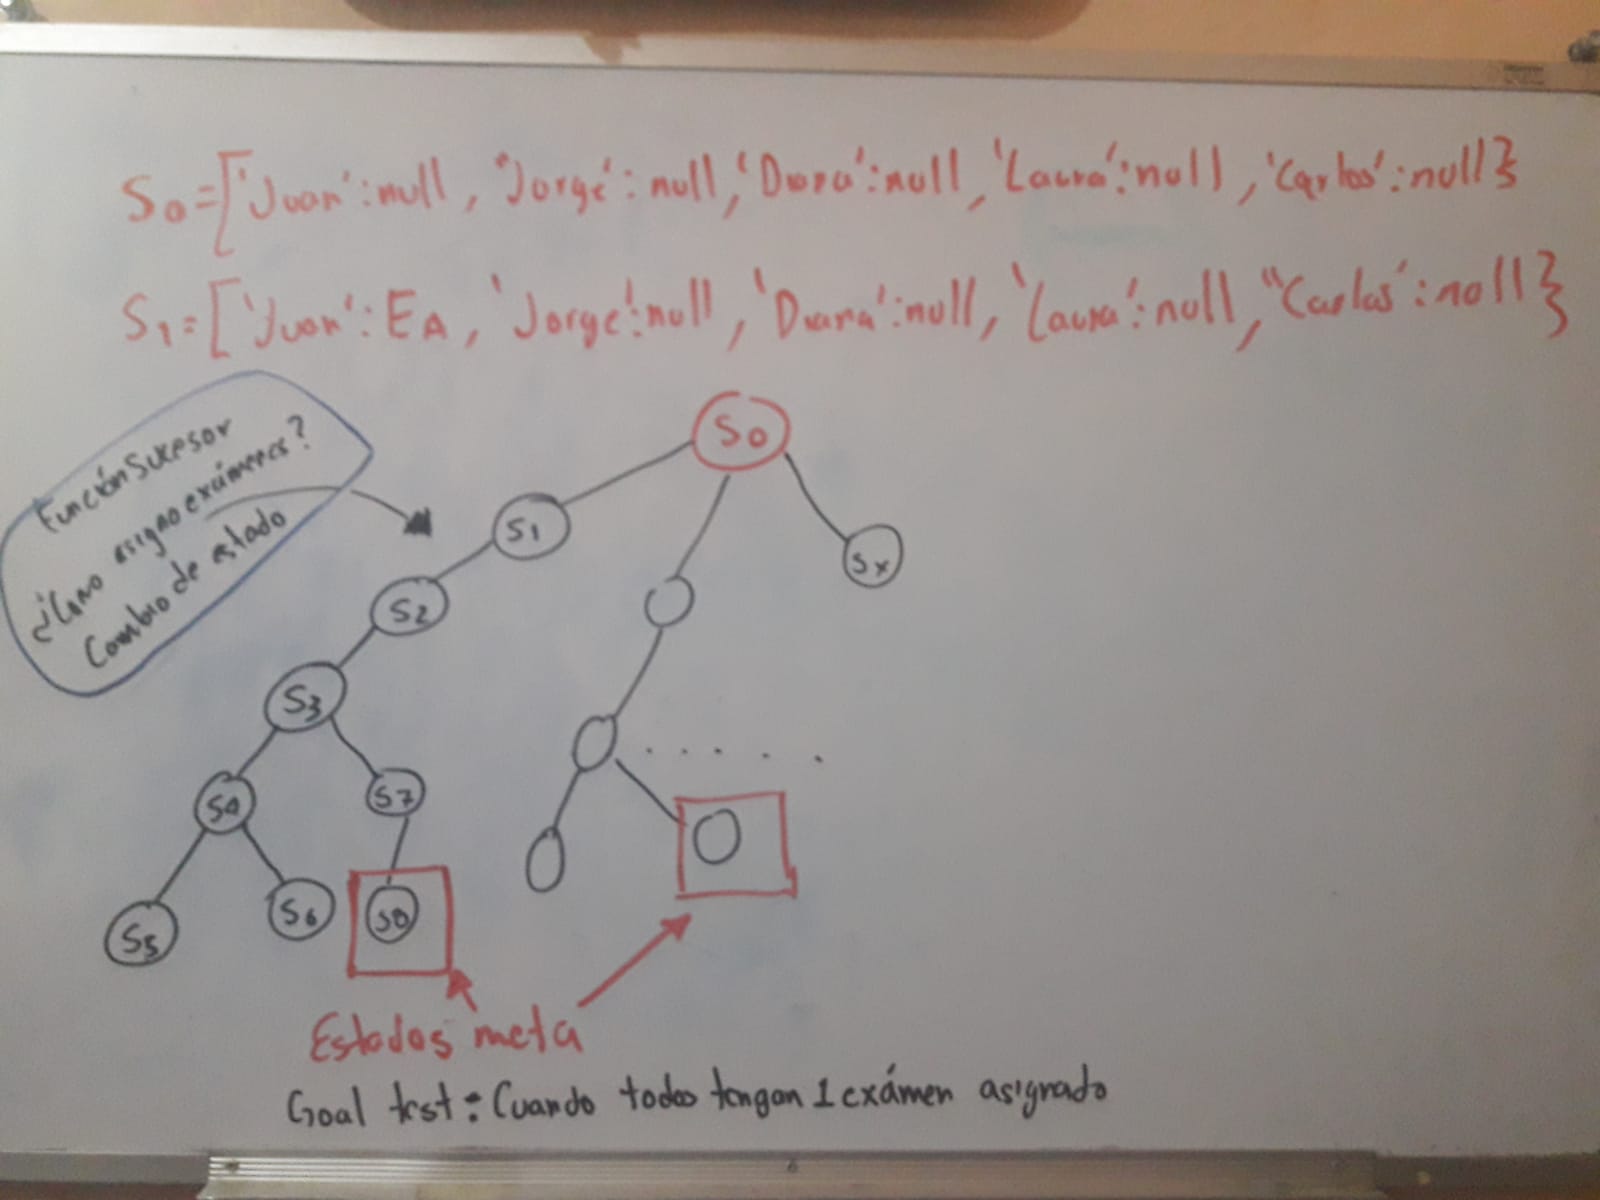 S0=['Juan':null, 'Jorge':null, 'Diana':null, 'Laura':null, 'Carlos':null}
S1=['Juan':EA, 'Jorge':null, 'Diana':null, 'Laura':null, "Carlos':null}
Función Sucesor
¿Como asigno exámenes?
Cambio de estado
S0
S1
Sx
S2
S3
S4
S7
S5
S6
S8
Estados meta
Goal test: Cuando todos tengan 1 exámen asignado